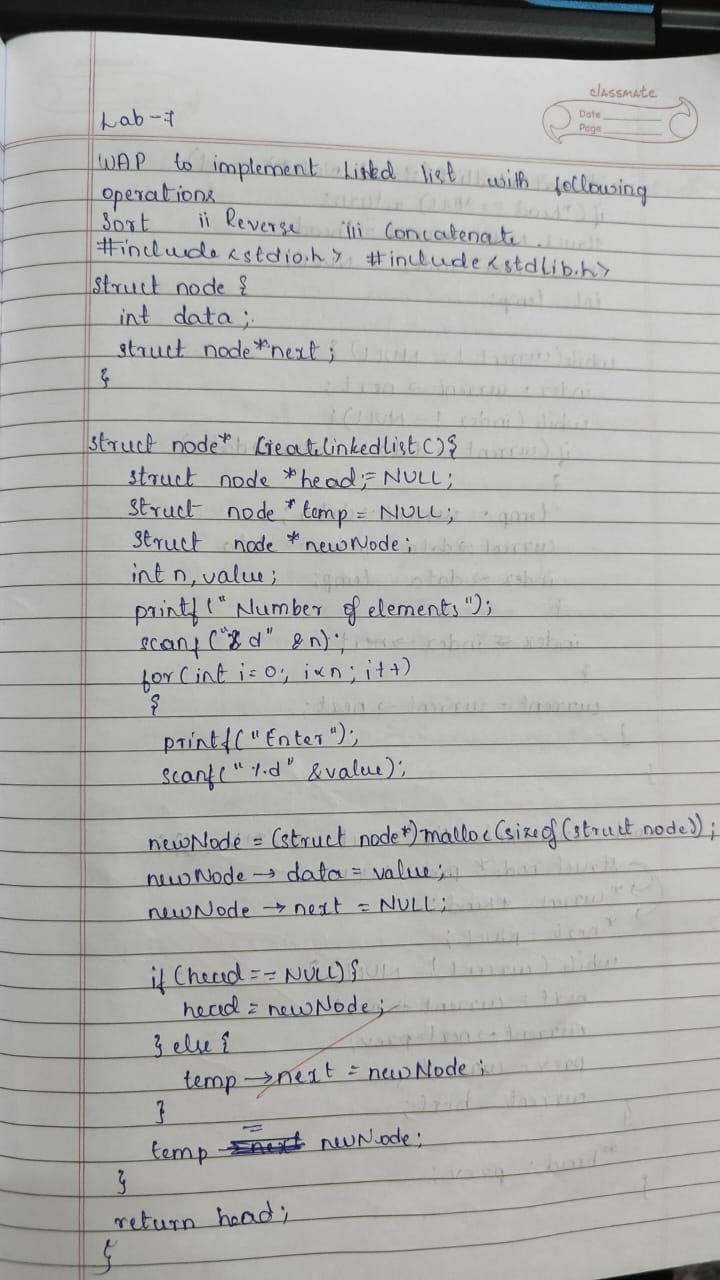 classmate
Date
Page
Lab-7
WAP to implement Linked list with following
operations
Sort ii Reverse iii Concatenate.
#include <stdio.h> #include <stdlib.h>
struct node {
int data;
struct node*next;
}
struct node* CreateLinkedList(){
struct node *head = NULL;
struct node *temp = NULL;
struct node *newNode;
int n, value;
printf("Number of elements");
scanf("%d" &n);
for(int i=0; i<n; i++)
{
printf("Enter");
scanf("%d" &value);
newNode = (struct node*)malloc(sizeof(struct node));
newNode → data = value;
newNode → next = NULL;
if (head == NULL){
head = newNode;
} else {
temp → next = newNode;
}
temp = newNode;
}
return head;
}